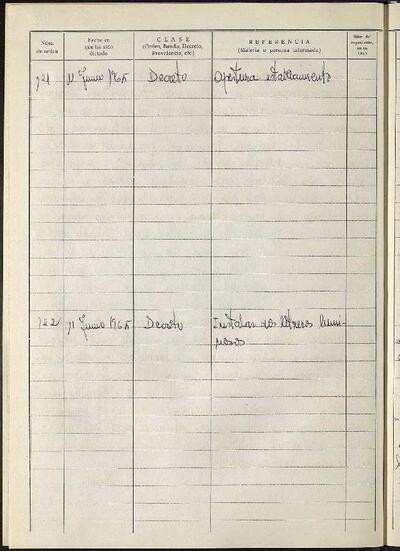 Núm. de orden
Fecha en que ha sido dictado
CLASE
(Orden, Bando, Decreto, Providencia, etc.)
REFERENCIA
(Materia o persona interesada)
121 11 Junio 1965 Decreto Apertura establecimiento
122 11 Junio 1965 Decreto Instalar dos letreros lumi-
nosos